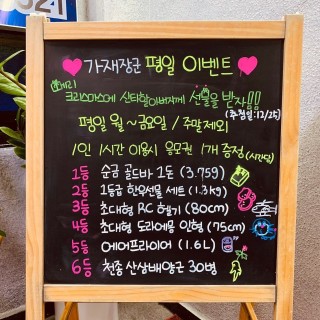 521
가재장군 평일 이벤트
메리
크리스마스에 산타할아버지께 선물을 받자!!
(추첨일:12/25)
평일 월~금요일 / 주말제외
1인 1시간 이용시 응모권 1개 증정
1등 순금 골드바 1돈 (3.75g)
2등 1등급 한우선물 세트 (1.3kg)
3등 초대형 RC 헬기 (80cm)
4등 초대형 도라에몽 인형 (75cm)
5등 에어프라이어 (1.6L)
6등 천종 산삼배양근 30병